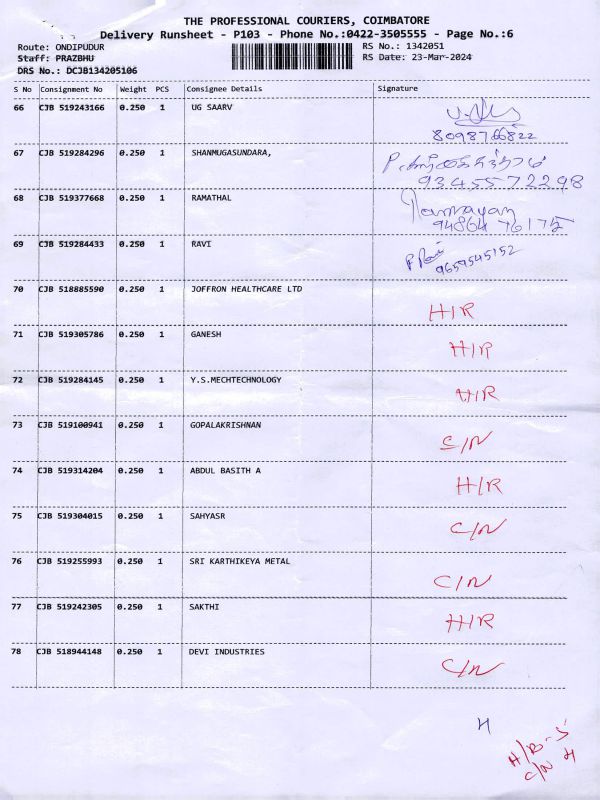 THE PROFESSIONAL COURIERS, COIMBATORE
Delivery Runsheet - P103 - Phone No.:0422-3505555 - Page No.:6
Route: ONDIPUDUR RS No.: 1342051
Staff: PRAZBHU RS Date: 23-Mar-2024
DRS No.: DCJB134205106
S No Consignment No Weight PCS Consignee Details Signature
66 CJB 519243166 0.250 1 UG SAARV
8098766822
67 CJB 519284296 0.250 1 SHANMUGASUNDARA,
9345572298
68 CJB 519377668 0.250 1 RAMATHAL
94864 76175
69 CJB 519284433 0.250 1 RAVI P Ravi
9659545152
70 CJB 518885590 0.250 1 JOFFRON HEALTHCARE LTD
H/R
71 CJB 519305786 0.250 1 GANESH
H/R
72 CJB 519284145 0.250 1 Y.S.MECHTECHNOLOGY
H/R
73 CJB 519100941 0.250 1 GOPALAKRISHNAN
C/N
74 CJB 519314204 0.250 1 ABDUL BASITH A
H/R
75 CJB 519304015 0.250 1 SAHYASR
C/N
76 CJB 519255993 0.250 1 SRI KARTHIKEYA METAL
C/N
77 CJB 519242305 0.250 1 SAKTHI
H/R
78 CJB 518944148 0.250 1 DEVI INDUSTRIES
C/N
H/R - 5
C/N 4